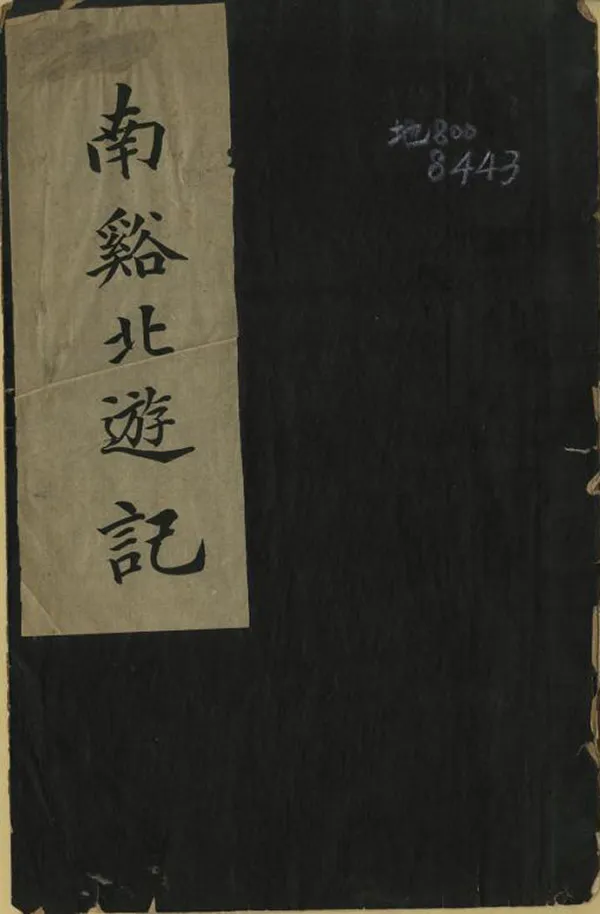 南谿北遊記
地800
8443